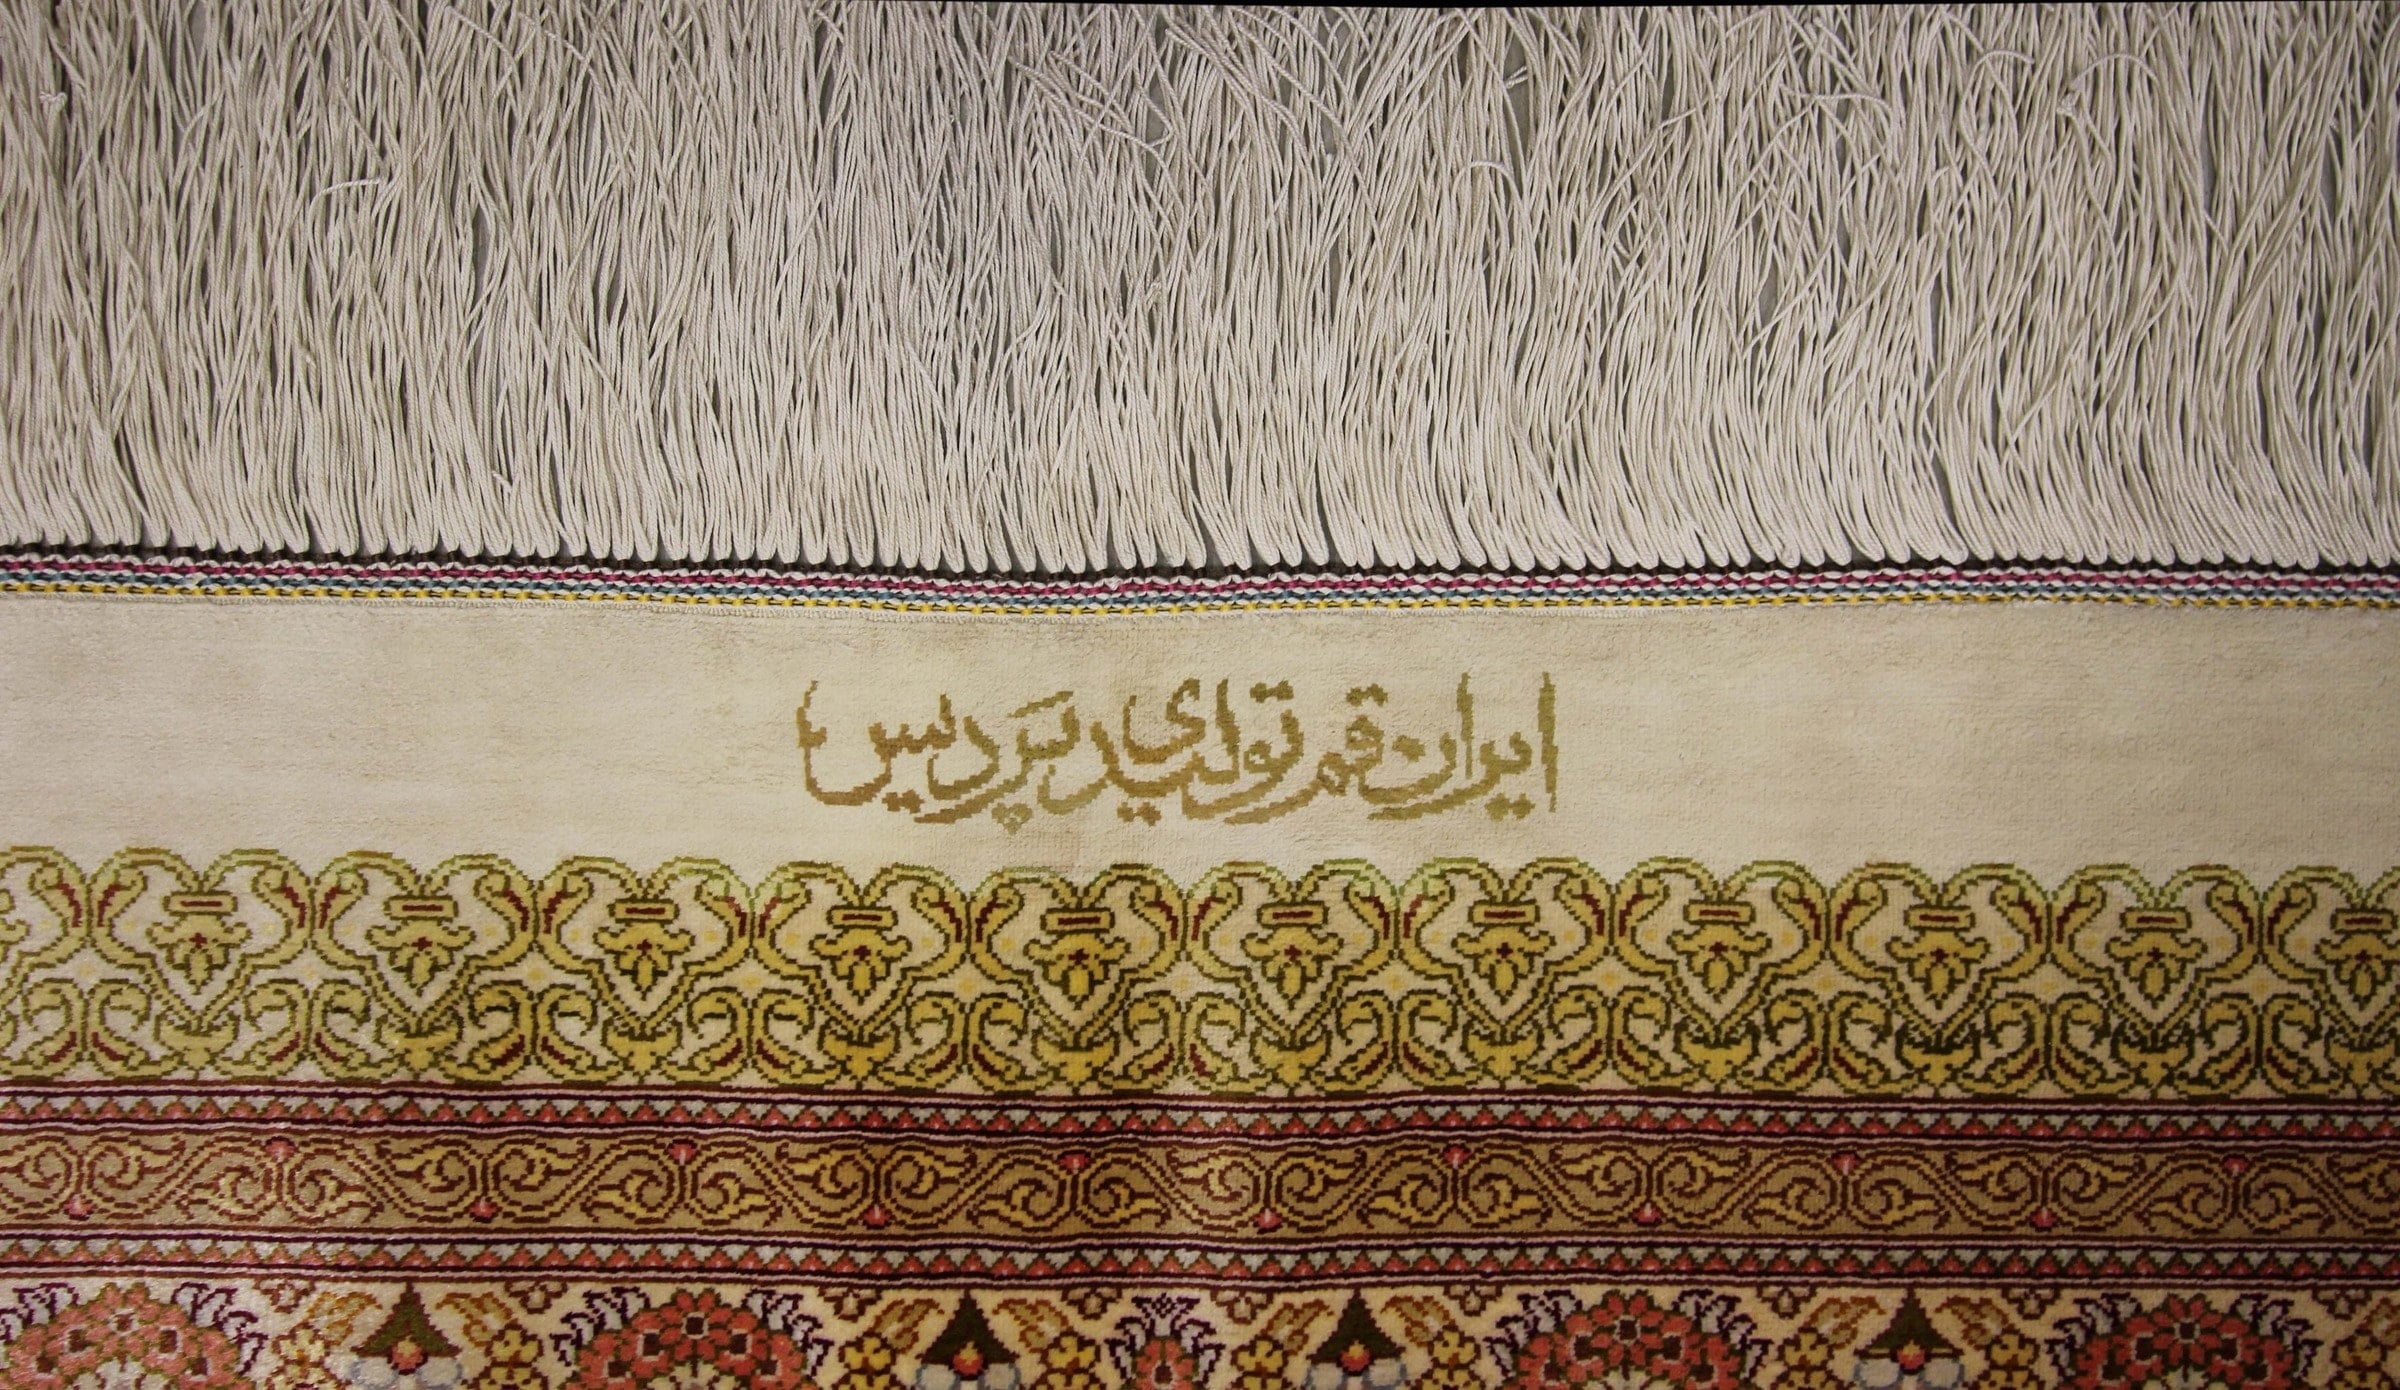 ایران قم تولیدی پردیس